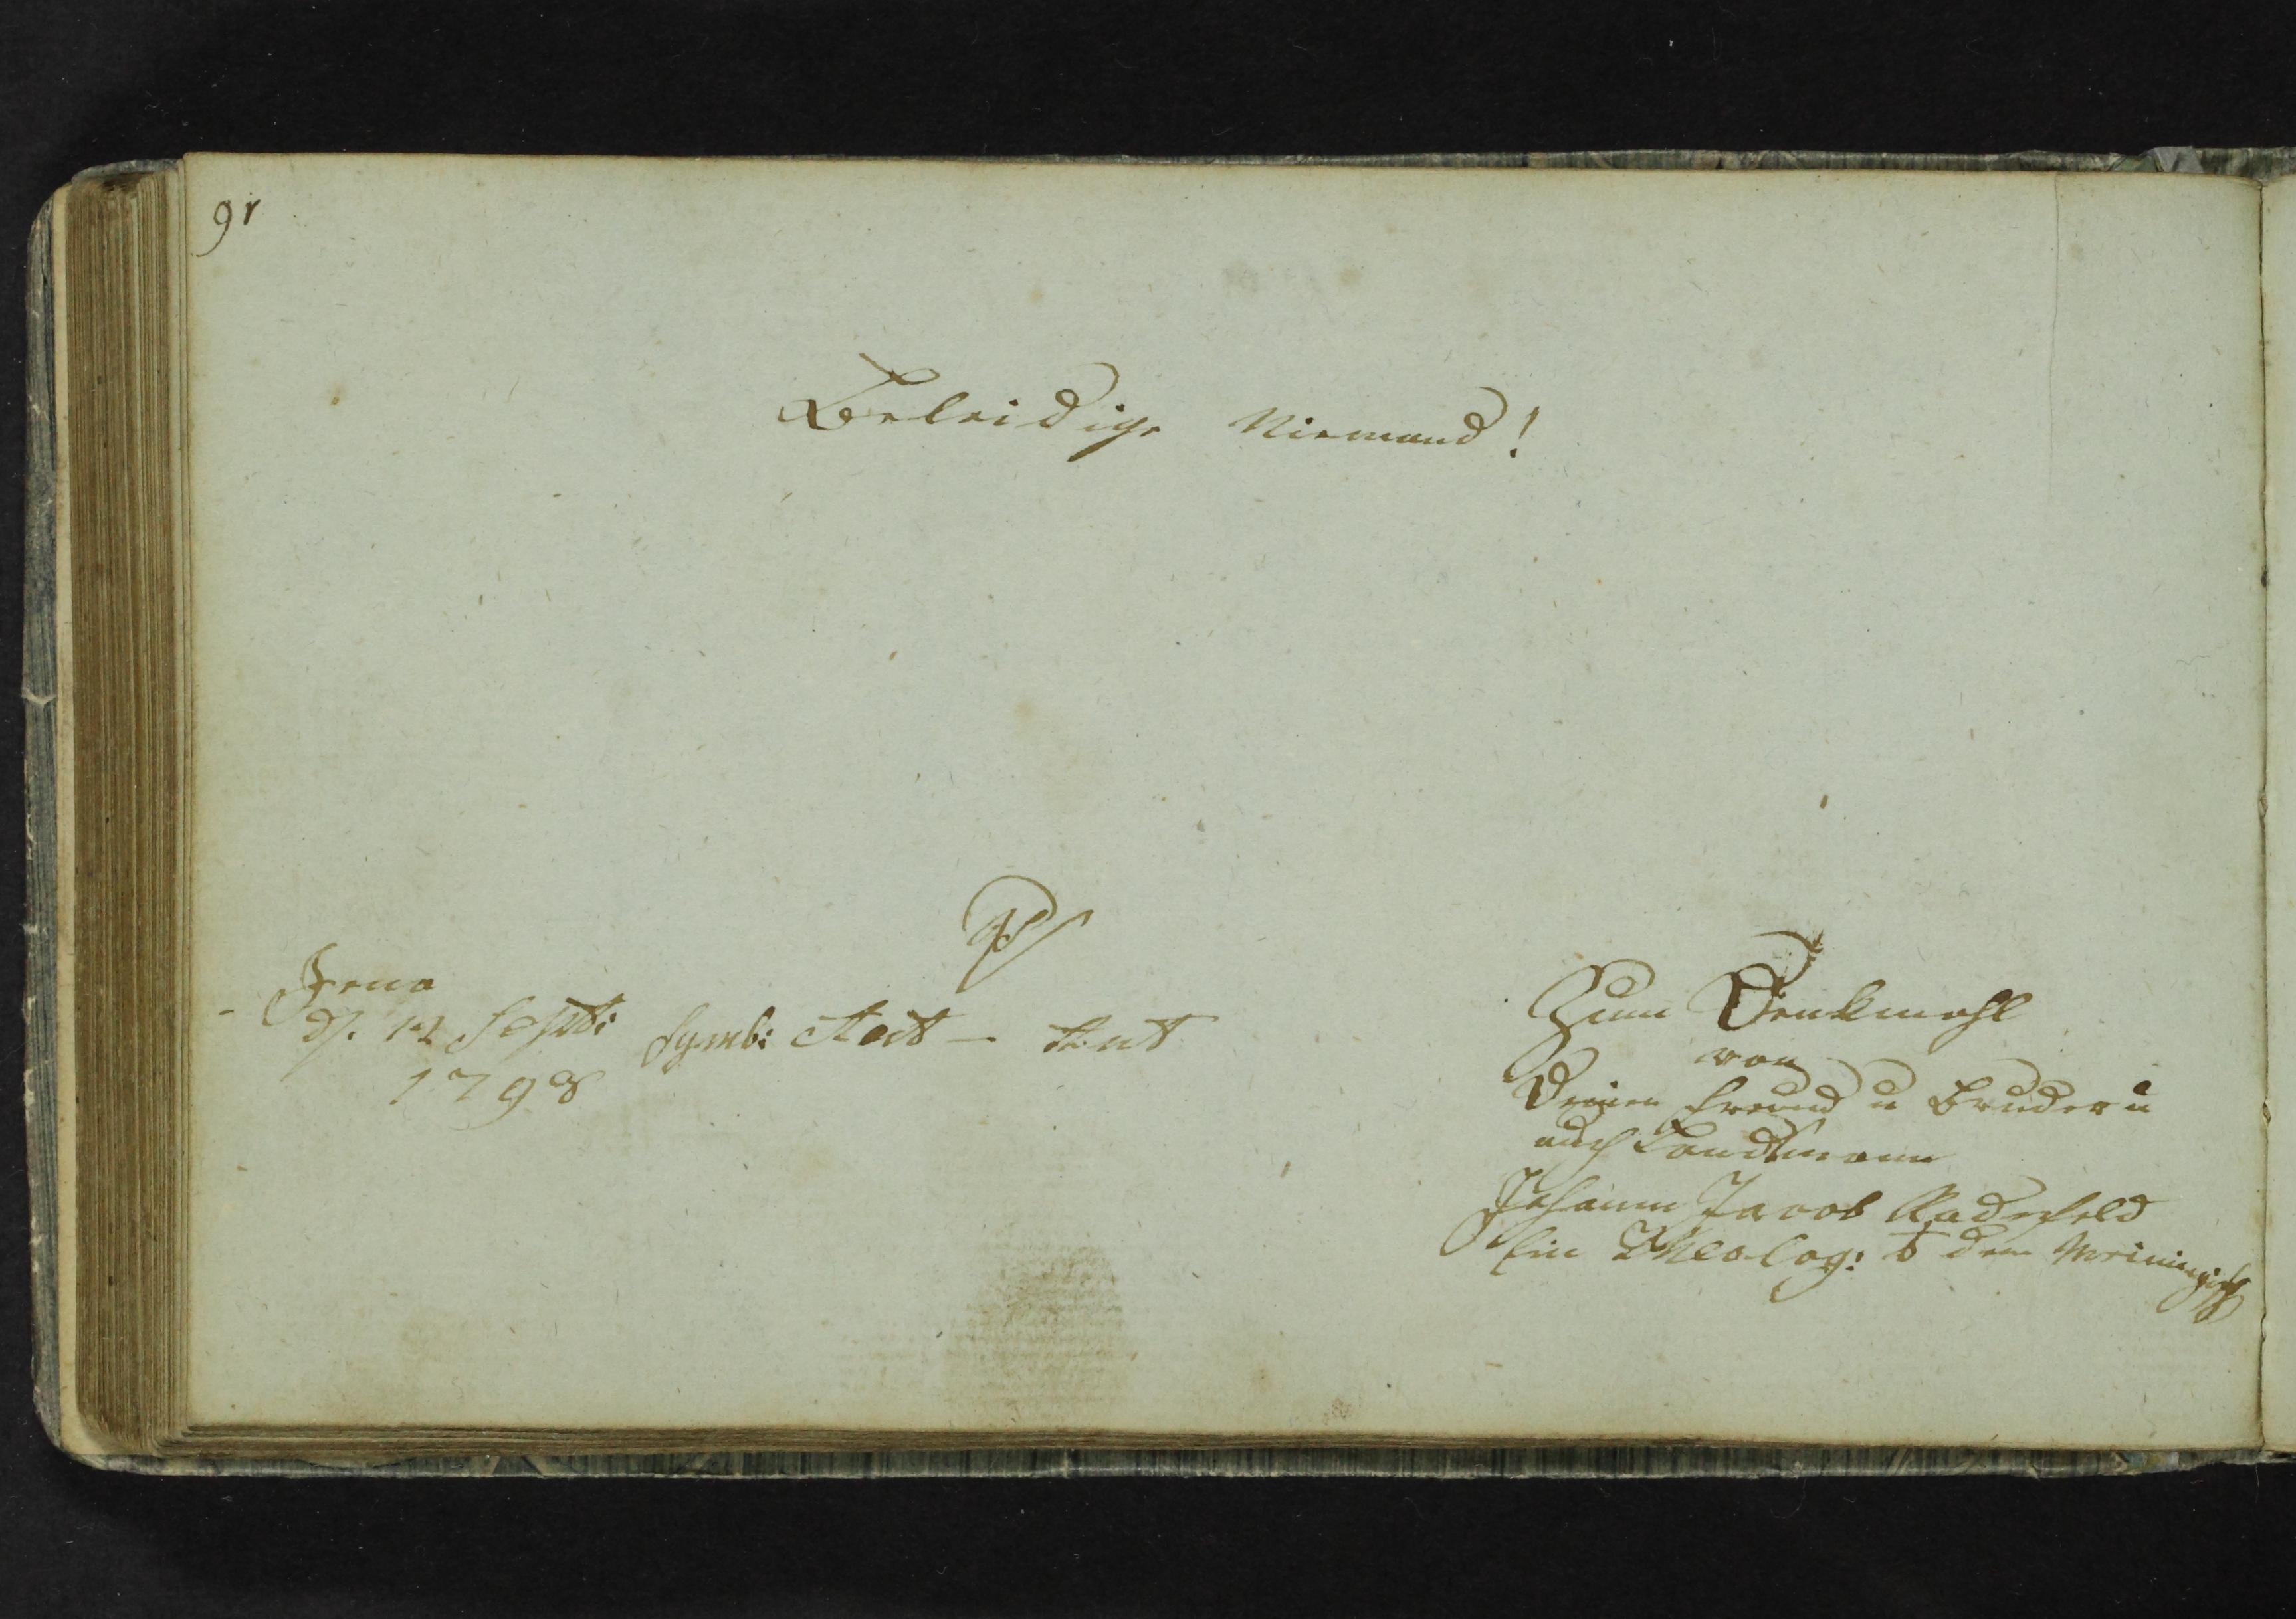 91
Beleidige Niemand!
Jena
d. 14 Septbr:
1798
Symb:
Zum Denkmahl
von
Deinen Freund u Bruder u
auch Landsmann
Johann Jacob Radefeld
Theolog: dem Meiningisch